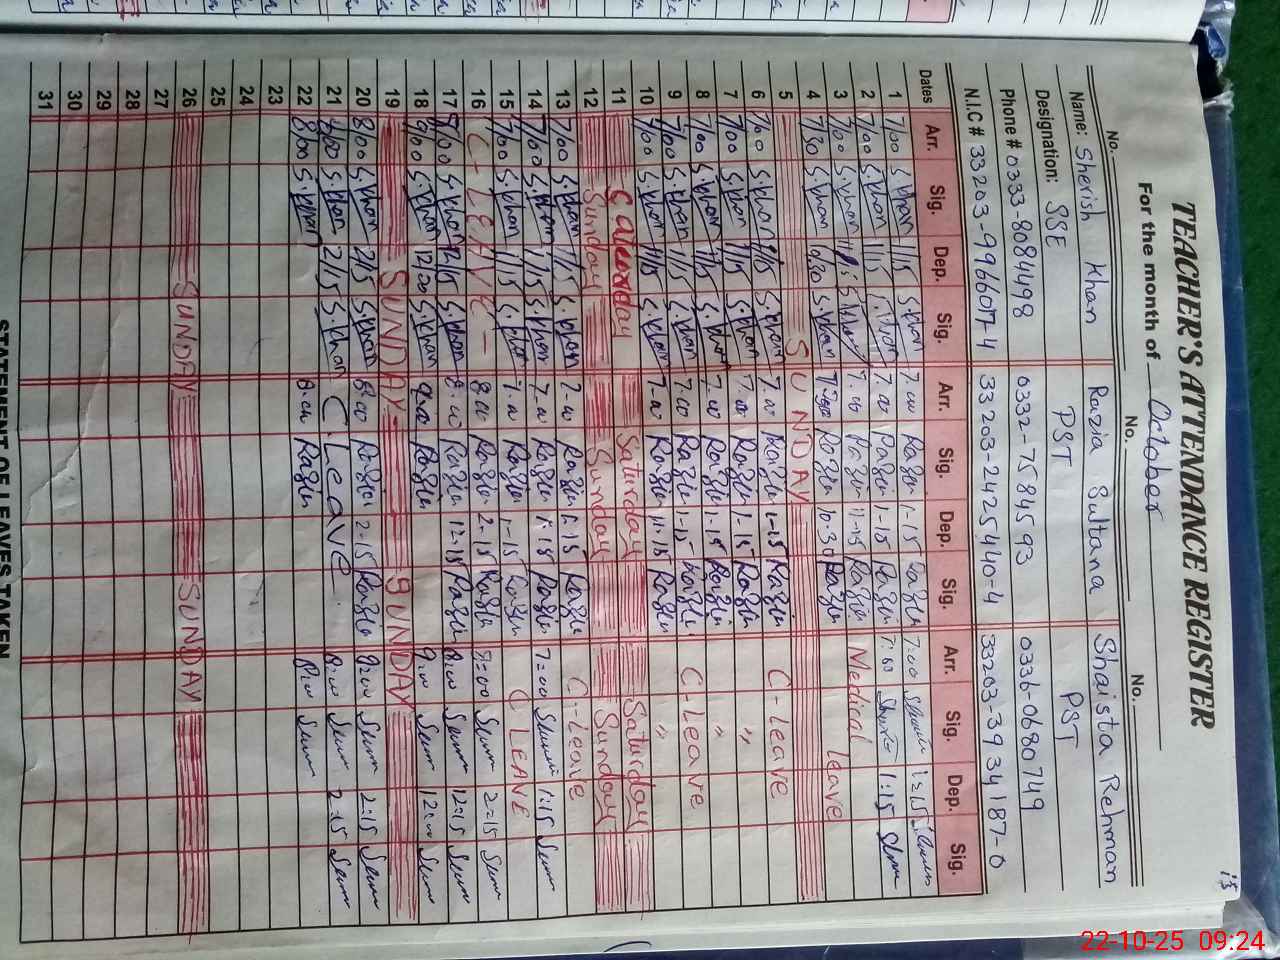 TEACHER'S ATTENDANCE REGISTER
For the month of October
No. No. No.
Name: Sherish Khan Razia Sultana Shaista Rehman
Designation: SSE PST PST
Phone # 0333-8084498 0332-7584593 0336-0680749
N.I.C # 33203-9966017-4 33203-2425440-4 33203-3934187-0
Dates Arr. Sig. Dep. Sig. Arr. Sig. Dep. Sig. Arr. Sig. Dep. Sig.
1 7/00 S.Khan 1/15 S.Khan 7.00 Razia 1-15 Razia 7:00 1:15
2 7/00 S.Khan 1/15 S.Khan 7.00 Razia 1-15 Razia 7:00 1:15
3 7/00 S.Khan 11/15 S.Khan 7.00 Razia 11-15 Razia Medical leave
4 7/30 S.Khan 10/30 S.Khan Razia 10-30 Razia
5 SUNDAY
6 7/00 S.Khan 1/15 S.Khan 7.00 Razia 1-15 Razia C-Leave
7 7/00 S.Khan 1/15 S.Khan 7.00 Razia 1-15 Razia "
8 7/00 S.Khan 1/15 S.Khan 7.00 Razia 1-15 Razia "
9 7/00 S.Khan 1/15 S.Khan 7.00 Razia 1-15 Razia C-Leave
10 7/00 S.Khan 11/15 S.Khan 7.00 Razia 11-15 Razia "
11 Saturday Saturday
12 Sunday Sunday Sunday
13 7/00 S.Khan 1/15 S.Khan 7.00 Razia 1-15 Razia C-Leave
14 7/00 S.Khan 1/15 S.Khan 7.00 Razia 1-15 Razia 7=00 1:15
15 7/00 S.Khan 1/15 S.Khan 7.00 Razia 1-15 Razia C LEAVE
16 C-LEAVE- 8.00 Razia 2-15 Razia 8=00 2=15
17 8/00 S.Khan 12/15 S.Khan 8.00 Razia 12-15 Razia 8:00 12=15
18 9/00 S.Khan 12:00 S.Khan 9.00 Razia 9:00 12:00
19 SUNDAY SUNDAY
20 8/00 S.Khan 2/15 S.Khan 8.00 Razia 2-15 Razia 8:00 2:15
21 8/00 S.Khan 2/15 S.Khan C Leave 8:00 2=15
22 8/00 S.Khan 8.00 Razia 8:00
23
24
25
26 SUNDAY SUNDAY
27
28
29
30
31
STATEMENT OF LEAVES TAKEN
22-10-25 09:24